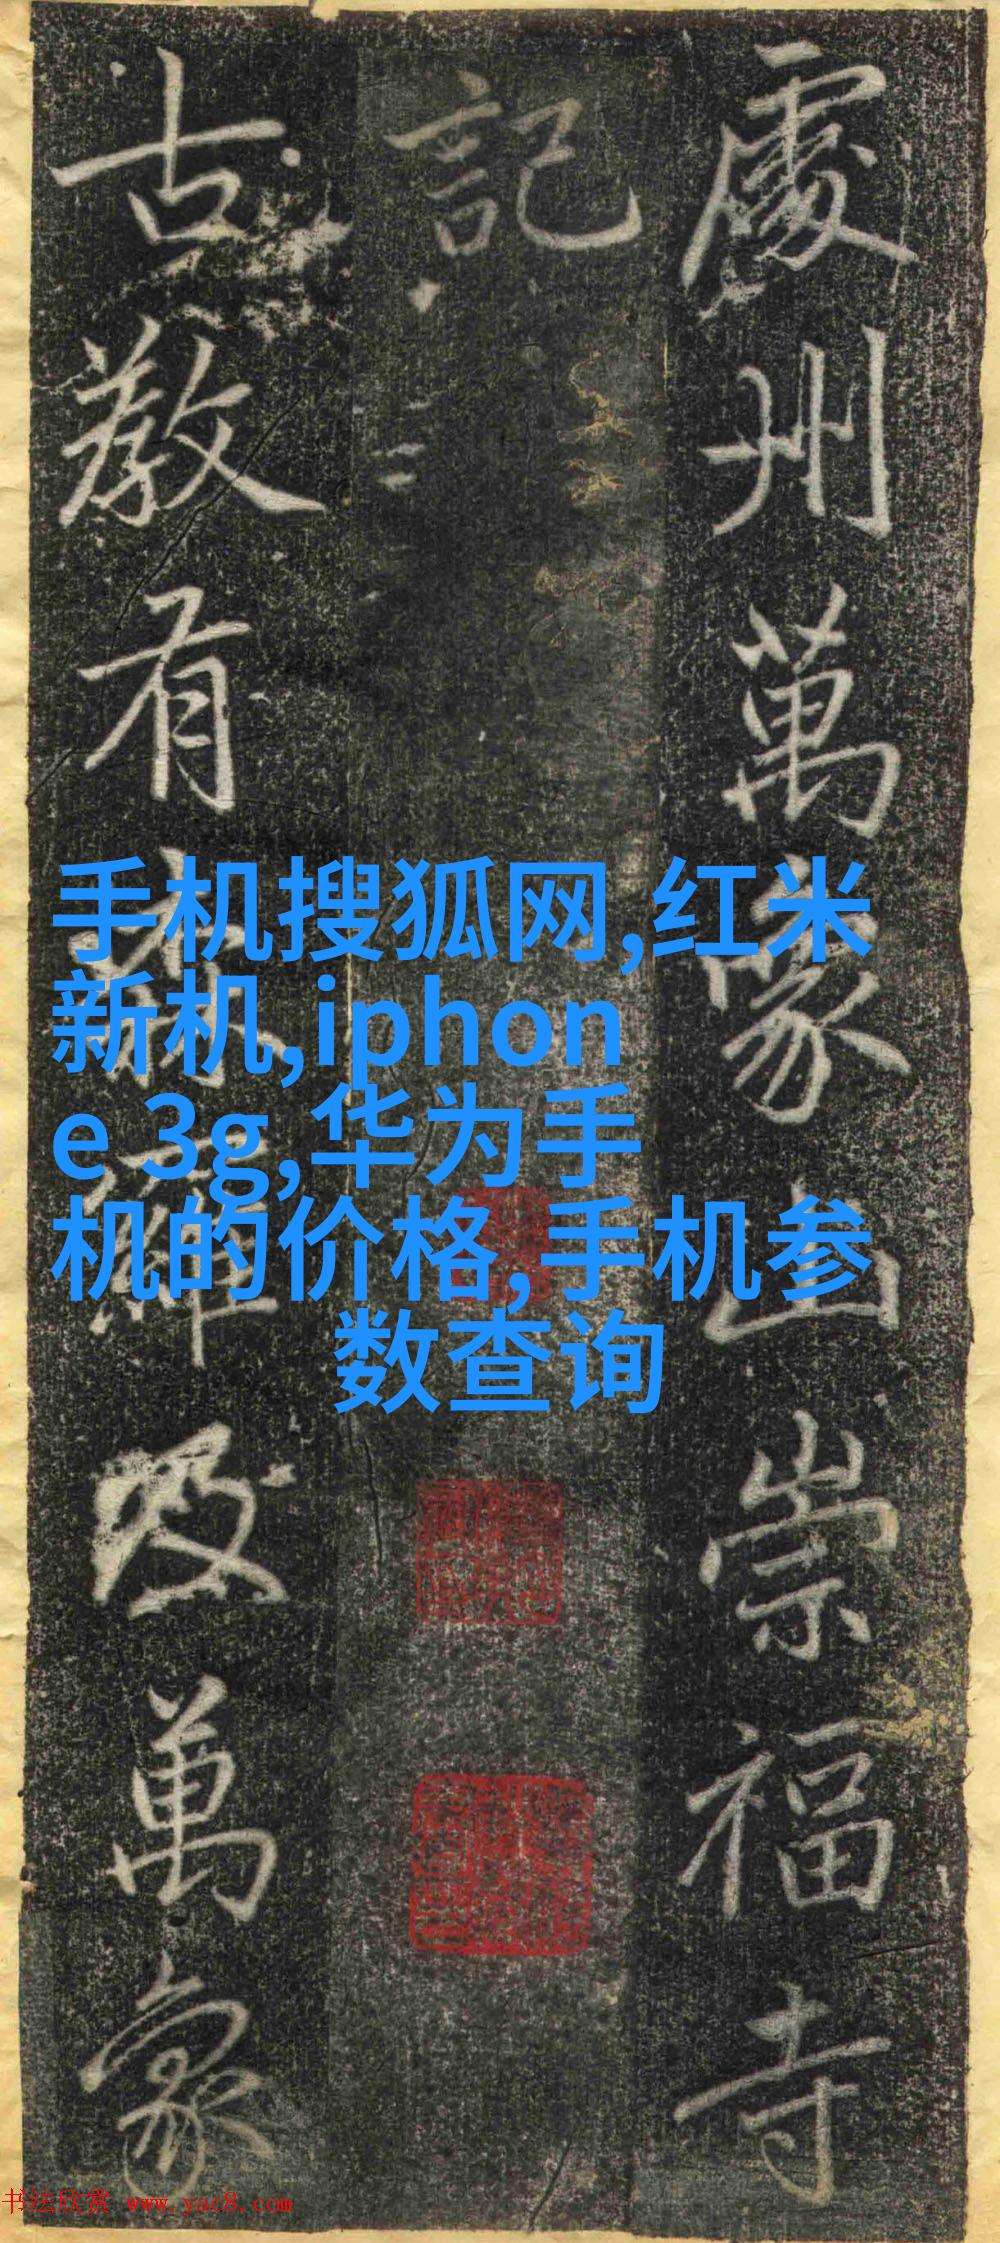 處州萬象山崇福寺
記
古教有森羅及萬象
手机搜狐网,红米
新机,iphon
e 3g,华为手
机的价格,手机参
数查询
书法欣赏 www.yac8.com